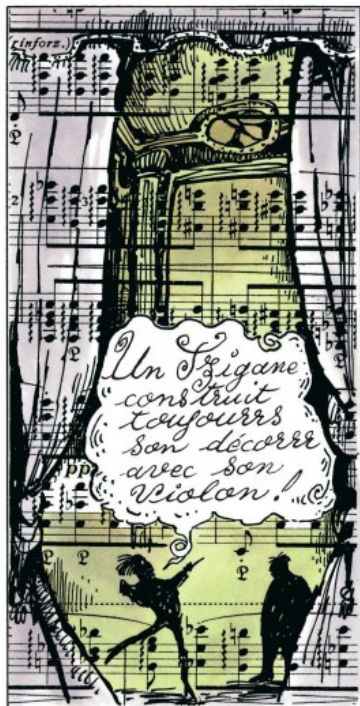 rinforz.)
2
3
Un Tzigane
construit
toujourrs
son décorrr
avec son
violon!
pp